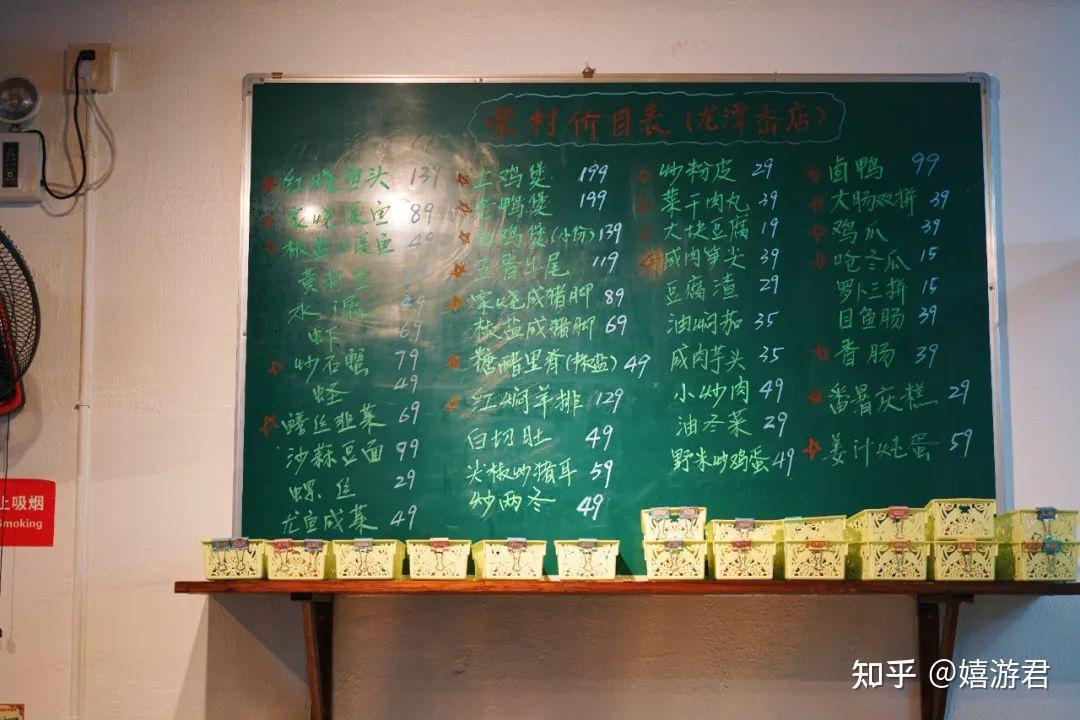 村价目表(龙潭岙店)
红烧鱼头 139
家烧溪鱼 89
椒盐小溪鱼 49
水潺 49
虾 69
炒石蟹 79
蛏 49
鳝丝韭菜 69
沙蒜豆面 99
螺丝 29
龙鱼咸菜 49
土鸡煲 199
老鸭煲 199
土鸡煲(小份) 139
五香牛尾 119
家烧咸猪脚 89
椒盐咸猪脚 69
糖醋里脊(椒盐) 49
红焖羊排 129
白切肚 49
尖椒炒猪耳 59
炒两冬 49
炒粉皮 29
菜干肉丸 39
大块豆腐 19
咸肉笋尖 39
豆腐渣 29
油焖茄 35
咸肉芋头 35
小炒肉 49
油冬菜 29
野米炒鸡蛋 49
卤鸭 99
大肠双拼 39
鸡爪 39
呛冬瓜 15
罗卜三拼 15
目鱼肠 39
香肠 39
番薯庆糕 29
姜汁炖蛋 59
止吸烟
Smoking
知乎 @嬉游君